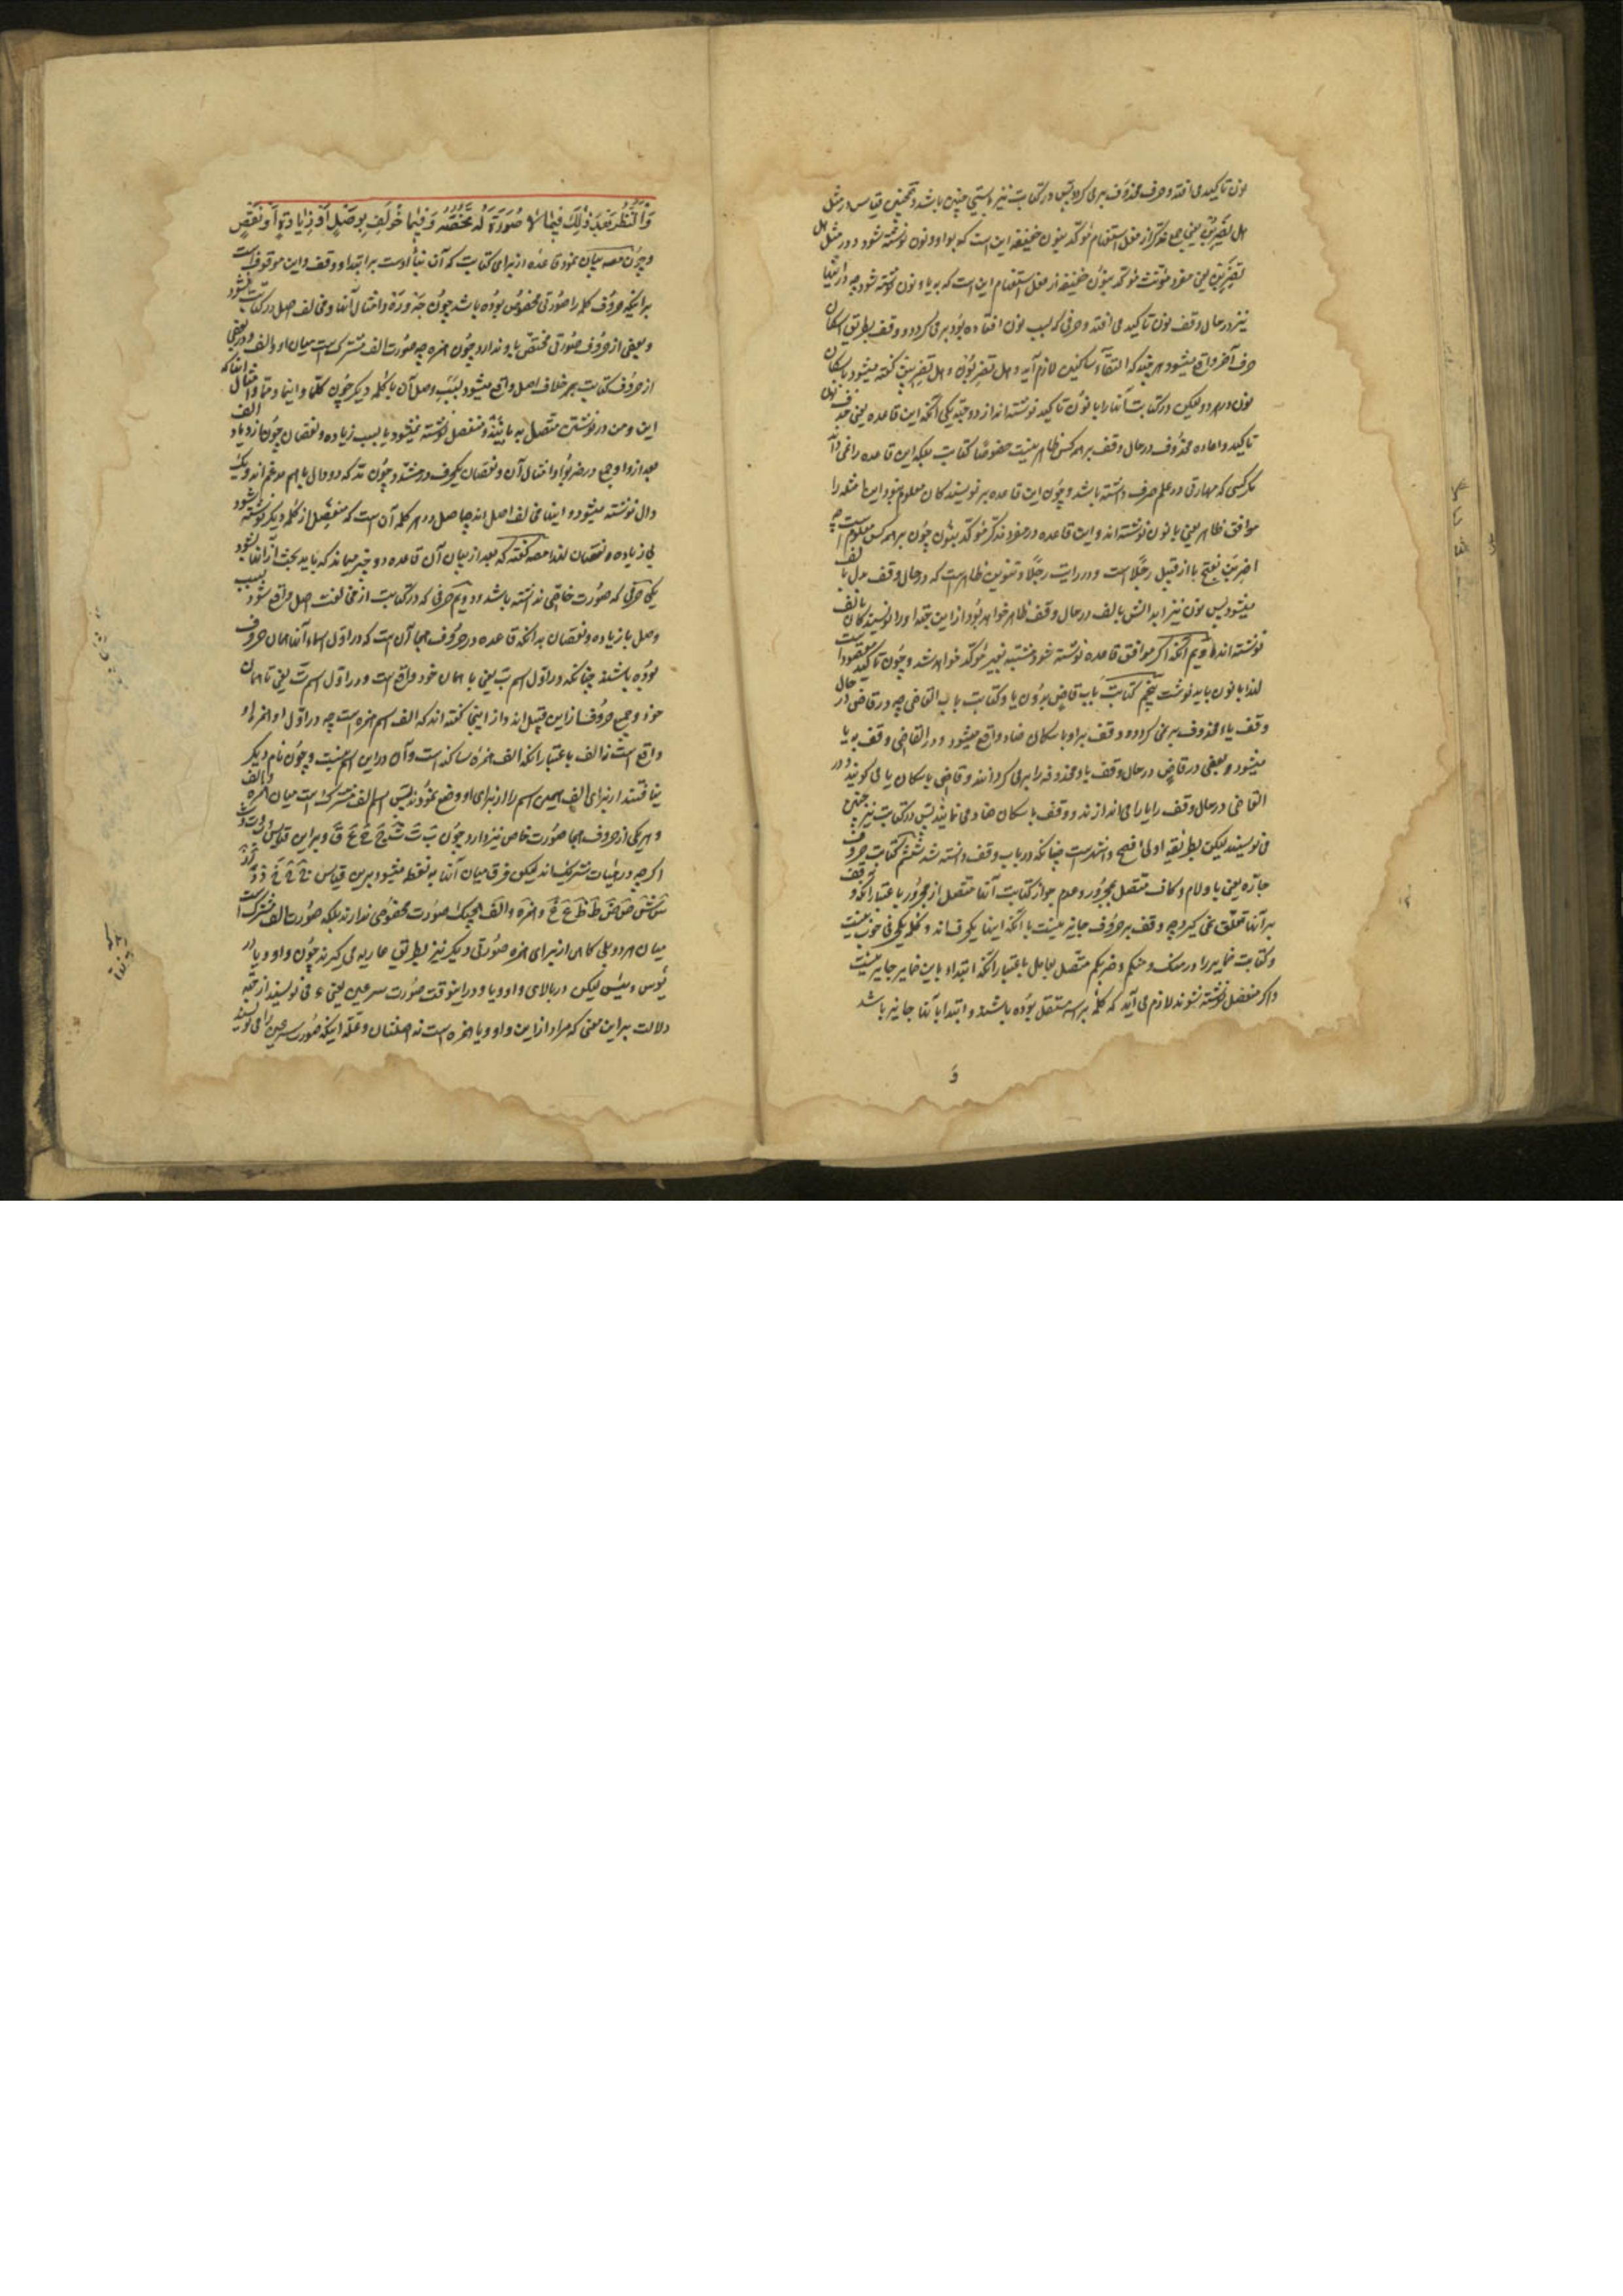 نون تاکید می افتد و حرف محذوف برمی کردد پس در کتابت نیز بایستی چنین باشد و همچنین قیاس در مثل
هل تضربن یعنی جمع مذکر از فعل استفهام مؤکد بنون خفیفه این است که بواو و نون نوشته شود و در مثل هل
تضربن یعنی مفرد مؤنث مؤکد بنون خفیفه از فعل استفهام این است که به یا و نون نوشته شود چه در اینها
نیز در حال وقف نون تاکید می افتد و حرفی که بسبب نون افتاده بود برمی کردد و وقف بطریق اسکان
حرف آخر واقع میشود هر چند که التقاء ساکنین لازم آید و هل تضربون و هل تضربین کفته میشود باسکان
نون در هر دو لیکن در کتابت آنها را با نون تاکید نوشته اند از دو جهة یکی آنکه این قاعده یعنی حذف نون
تاکید و اعاده محذوف در حال وقف بر همه کس ظاهر نیست خصوصا کتاب بلکه این قاعده را نمی داند
مکر کسی که مهارتی در علم صرف داشته باشد و چون این قاعده بر نویسندکان معلوم نبود این امثله را
موافق ظاهر یعنی با نون نوشته اند و این قاعده در مفرد مذکر مؤکد بنون چون بر همه کس معلوم است چه
اضربن بفتح با از قبیل رجلا است و در رایت رجلا و تنوین ظاهر است که در حال وقف بدل بالف
میشود پس نون نیز ابدالش بالف در حال وقف ظاهر خواهد بود از این جهة او را نویسندکان بالف
نوشته اند دویم آنکه اکر موافق قاعده نوشته شود مشتبه بغیر مؤکد خواهد شد و چون تاکید مقصود است
لهذا با نون باید نوشت پنجم کتابت باب قاض بدون یا و کتابت باب القاضی چه در قاض در حال
وقف یاء محذوف برنمی کردد و وقف بر او باسکان ضاد واقع میشود و در القاضی وقف به یا
میشود و بعضی در قاض در حال وقف یاء محذوفه را برمی کردانند و قاضی باسکان یا می کویند و در
القاضی در حال وقف یا را می اندازند و وقف باسکان ضاد می نمایند پس در کتابت نیز چنین
می نویسند لیکن طریقه اولی افصح و اشهر است چنانکه در باب وقف دانسته شد ششم کتابت حروف
جاره یعنی با و لام و کاف متصل بمجرور و عدم جواز کتابت آنها منفصل از مجرور باعتبار آنکه وقف
بر آنها تعلق نمی کیرد چه وقف بر حروف جایز نیست با آنکه اینها یکحرف اند و کلمه یکحرفی خوب نیست
و کتابت ضمایر را در منک و منکم و ضربکم متصل بعامل باعتبار آنکه ابتداء باین ضمایر جایز نیست
و اکر منفصل نوشته شوند لازم می آید که کلمه براسه مستقل بوده باشند و ابتدا بآنها جایز باشد
و
وَالنَّظَرُ بَعْدَ ذٰلِکَ فِیمَا لَا صُورَةَ لَهُ تَخُصُّهُ وَ فِیمَا خُولِفَ بِوَصْلٍ أَوْ زِیَادَةٍ أَوْ نَقْصٍ
و چون مصه بیان نمود قاعده از برای کتابت که آن بنا است بر ابتدا و وقف و این موقوف است
بر اینکه حروف کلمه را صورتی مخصوص بوده باشد چون جه و ره و امثال آنها و مخالف اصل در کتابت نشود
و بعضی از حروف صورتی مختص باو ندارد چون همزه چه صورت الف مشترک است میان او و الف و در بعضی
از حروف کتابت بر خلاف اصل واقع میشود بسبب وصل آن با کلمه دیکر چون کلما و اینما و مما و امثال اینها که
این و من در نوشتن متصل به ما یند و منفصل نوشته نمیشود یا بسبب زیاده و نقصان چون ازدیاد الف
بعد از واو جمع در ضربوا و امثال آن و نقصان یکحرف در مشدد چون مد که دو دال با هم مدغم اند و یک
دال نوشته میشود و اینها مخالف اصل اند چه اصل در هر کلمه آن است که منفصل از کلمه دیکر نوشته شود
بی زیاده و نقصان لهذا مصه کفته که بعد از بیان آن قاعده دو چیز میماند که باید بحث از آنها بشود
یکی حرفی که صورت خاصی نداشته باشد و دویم حرفی که در کتابت از مخالفت اصل واقع شود بسبب
وصل یا زیاده و نقصان بدانکه قاعده در حروف هجا آن است که در اول اسماء آنها همان حروف
بوده باشند چنانکه در اول اسم ب یعنی با همان خود واقع است و در اول اسم ت یعنی تا همان
خود و جمیع حروف از این قبیل اند و از اینجا کفته اند که الف اسم همزه است چه در اول او همزه او
واقع است نه الف باعتبار آنکه الف همزه ساکنه است و آن در این اسم نیست و چون نام دیکر
نیافتند از برای الف همین اسم را از برای او وضع نمودند پس اسم الف مشترک است میان همزه و الف
و هر یکی از حروف هجا صورت خاص نیز دارد چون ب ت ث ج ح خ ق و بر این قیاس
اکر چه در هیات مشترک اند لیکن فرق میان آنها به نقطه میشود برین قیاس
س ش ص ض ط ظ ع غ و همزه و الف هیچیک صورت مخصوصی ندارند بلکه صورت الف مشترک است
میان هر دو بلی کاهی از برای همزه صورتی دیکر نیز بطریق عاریه می کیرند چون واو و یا در
بؤس و بئس لیکن در بالای واو و یا در اینوقت صورت سر عین یعنی ء می نویسند از جهة
دلالت بر این معنی که مراد از این واو و یا همزه است نه اصلشان و علة اینکه صورت سر عین را می نویسند